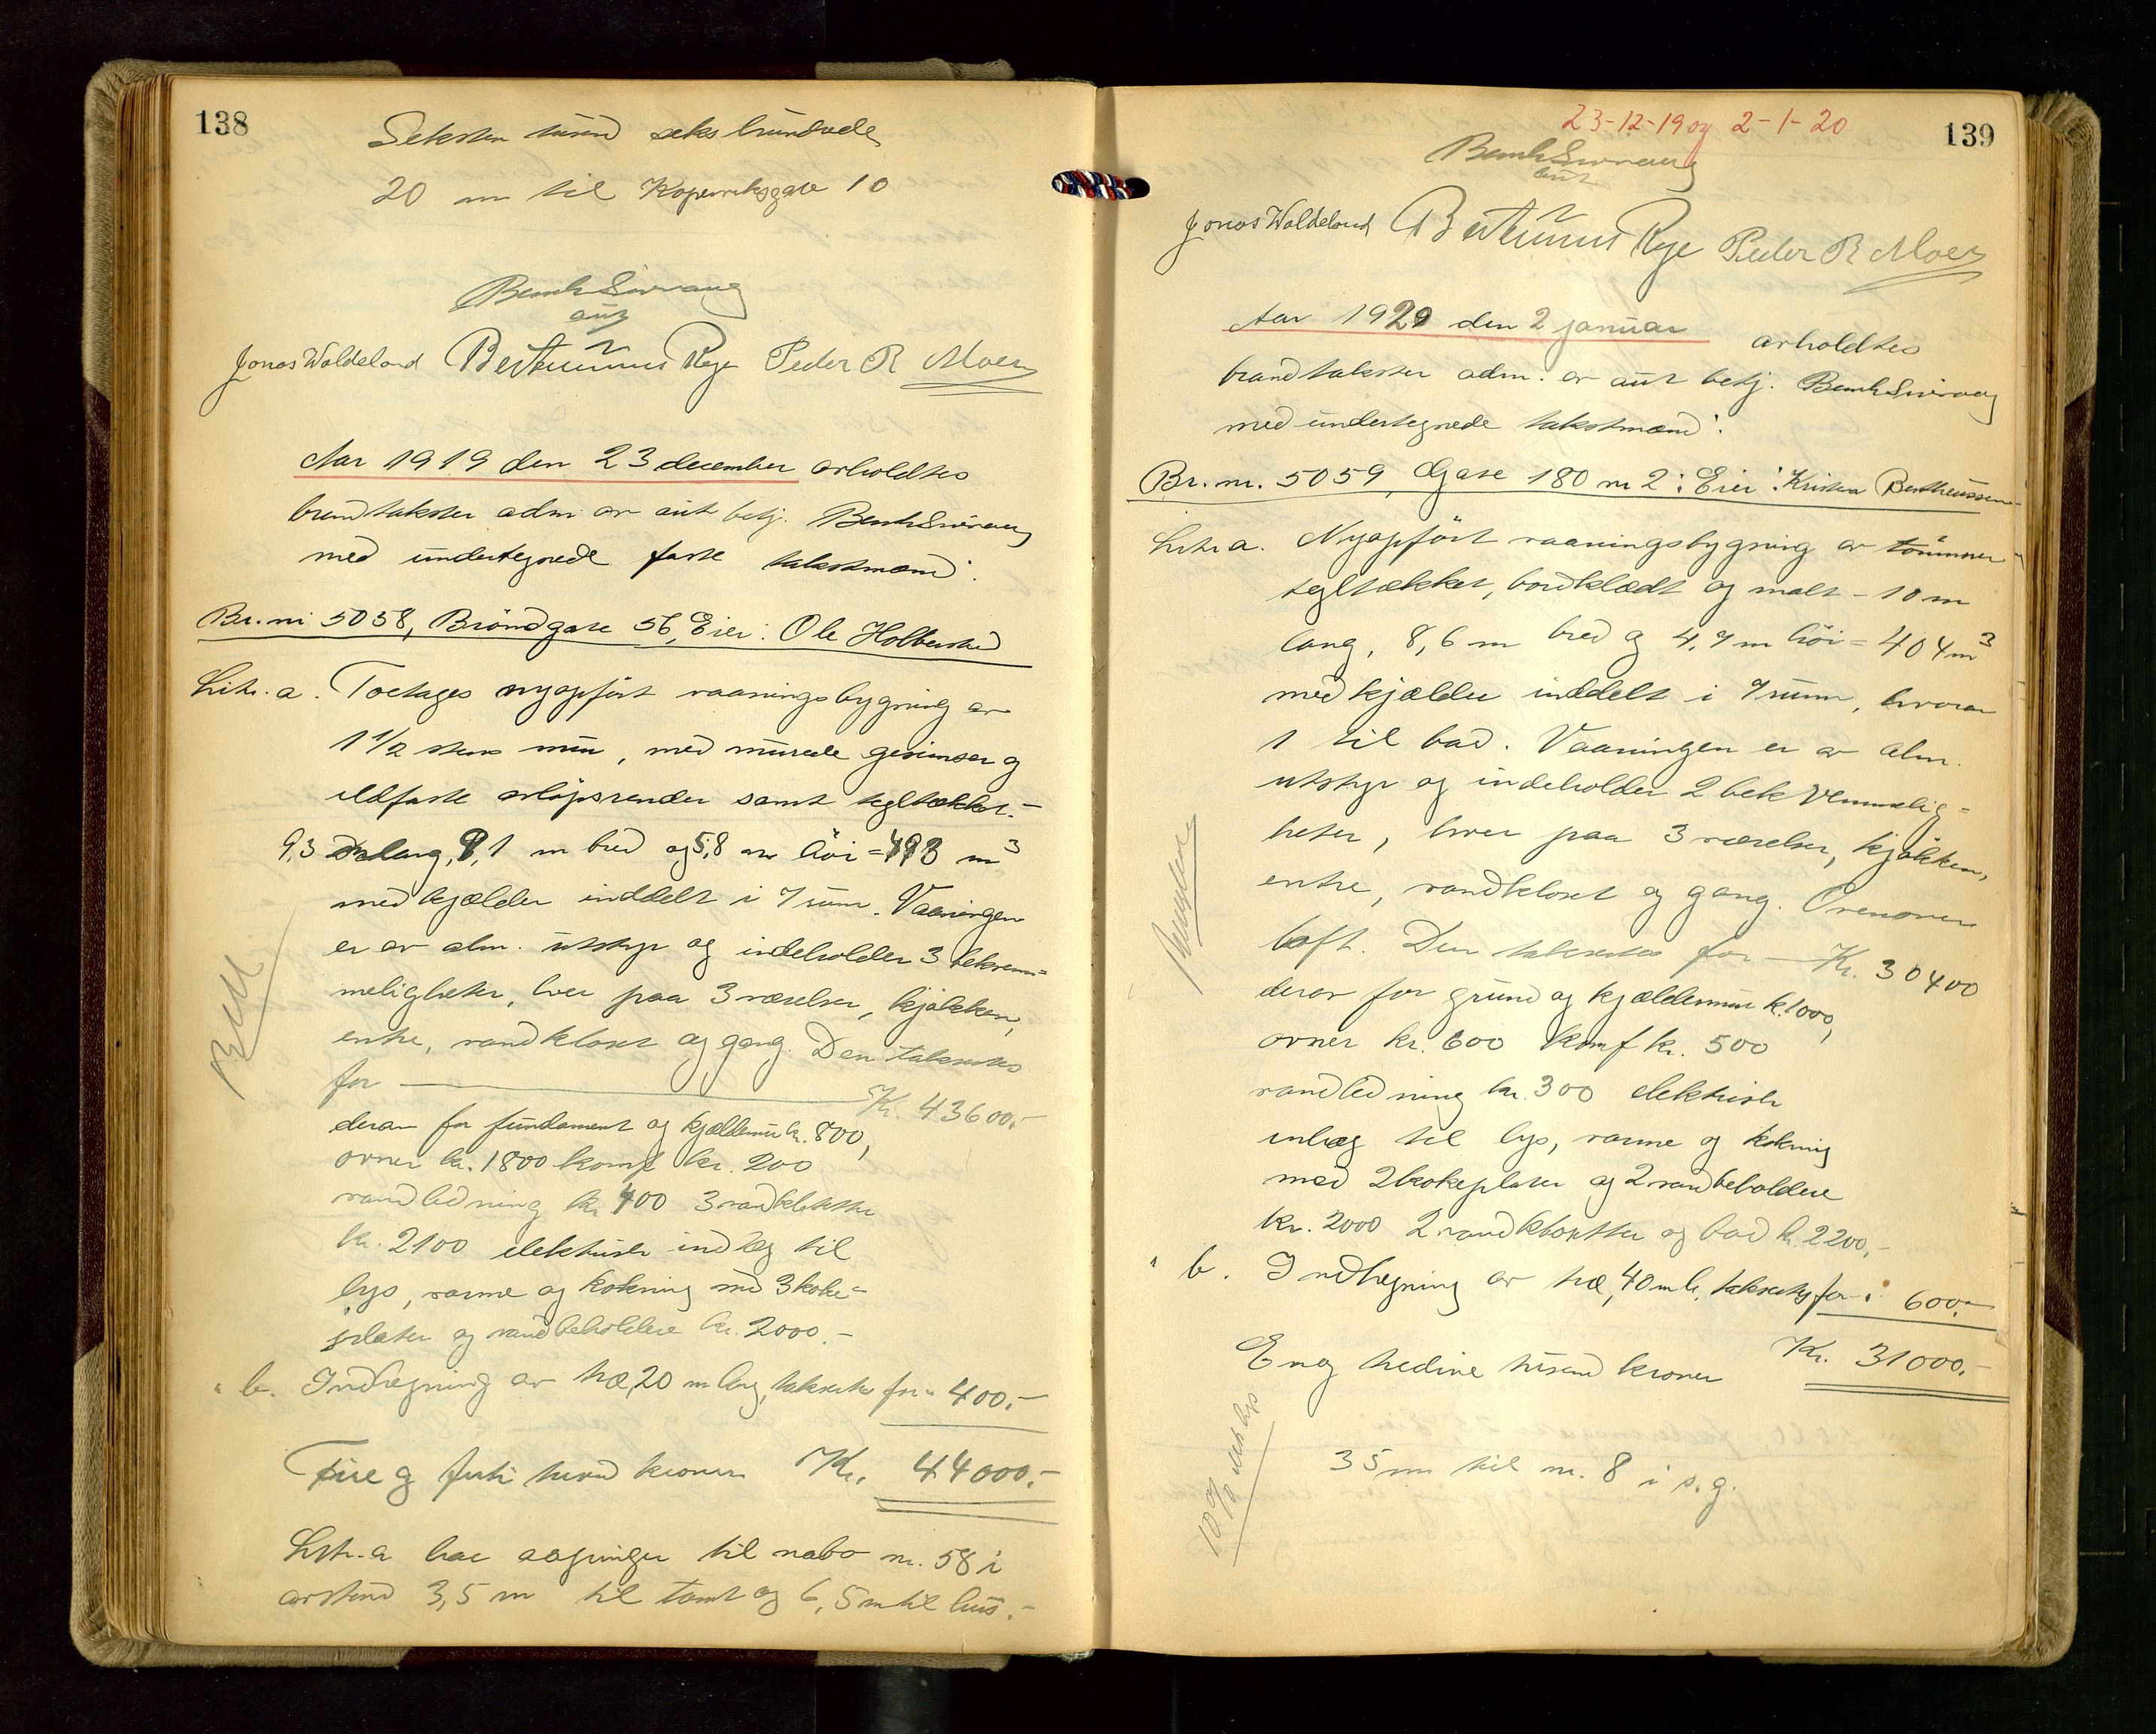 138
Seksten tusen seks hundrede
20 m til Kopervikgate 10
Bernh Sirevaag
aut
Jonas Waldeland Bertinius Rege Peder R Moen
Aar 1919 den 23 december avholdtes
brandtakster adm av aut betj. Bernh Sirevaag
med undertegnede faste takstmænd:
Br. nr 5058, Bröndgate 56, Eier: Ole
Litr. a. Toetages nyopfört vaaningsbygning av
1 1/2 stens mur, med murede gesimser og
ildfaste avlöpsrender samt tegltækket.-
9,3 m lang, 9,1 m bred og 5,8 m höi = 493 m3
med kjælder inddelt i 7 rum. Vaaningen
er av alm. utstyr og indeholder 3 bekvem=
meligheter, hver paa 3 værelser, kjökken,
entre, vandkloset og gang. Den takseres
for Kr. 43600.-
derav for fundament og kjældermur kr. 800,
ovner kr. 1800 komf kr. 200
vandledning kr 400 3 vandklosetter
kr. 2100 elektrisk indlæg til
lys, varme og kokning med 3 koke-
plater og vandbeholdere kr. 2000.-
" b. Indhegning av træ, 20 m lang, takseres for " 400.-
Fire og firti tusend kroner Kr. 44000.-
Litr. a har aapninger til nabo nr. 58 i
avstand 3,5 m til tomt og 6,5 m til hus.-
139
23-12-19 og 2-1-20
Bernh Sirevaag
aut
Jonas Waldeland Bertinius Rege Peder R Moen
Aar 1920 den 2 januar avholdtes
brandtakster adm. av aut betj. Bernh Sirevaag
med undertegnede takstmænd:
Br. nr. 5059, Gate 180 nr 2: Eier: Kristen Bertheussen
Litr a. Nyopfört vaaningsbygning av tömmer
tegltækket, bordklædt og malt - 10 m
lang, 8,6 m bred og 4,7 m höi = 404 m3
med kjælder inddelt i 7 rum, hvorav
1 til bad. Vaaningen er av alm.
utstyr og indeholder 2 bekvemmelig=
heter, hver paa 3 værelser, kjökken,
entre, vandkloset og gang. Ovenover
loft. Den takseres for Kr. 30400
derav for grund og kjældermur kr. 1000,
ovner kr. 600 komf kr. 500
vandledning kr. 300 elektrisk
inlæg til lys, varme og kokning
med 2 kokeplater og 2 vandbeholdere
kr. 2000 2 vandklosetter og bad kr. 2200,-
" b. Indhegning av træ, 40 m l., takseres for " 600.-
En og tredive tusend kroner Kr. 31000.-
35 m til nr. 8 i s. g.